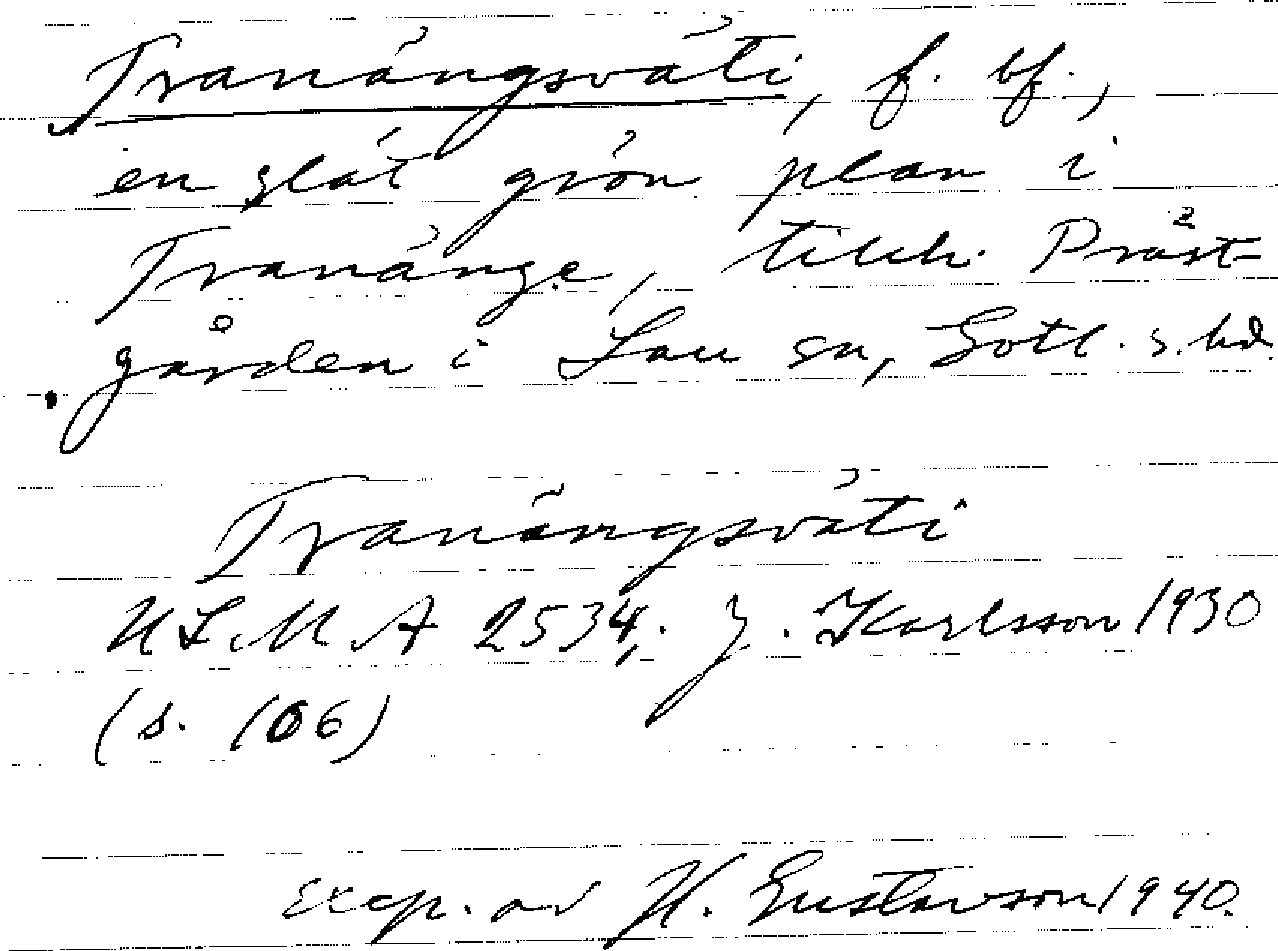 Tranängsväti, f. bf.,
en slät grön plan i
Tranänge, tillh. Präst-
gården i Lau sn, Gotl. s. hd.
Tranängsväti
ULMA 2534; J. Karlsson 1930
(s. 106)
excp. av H. Gustavson 1940.